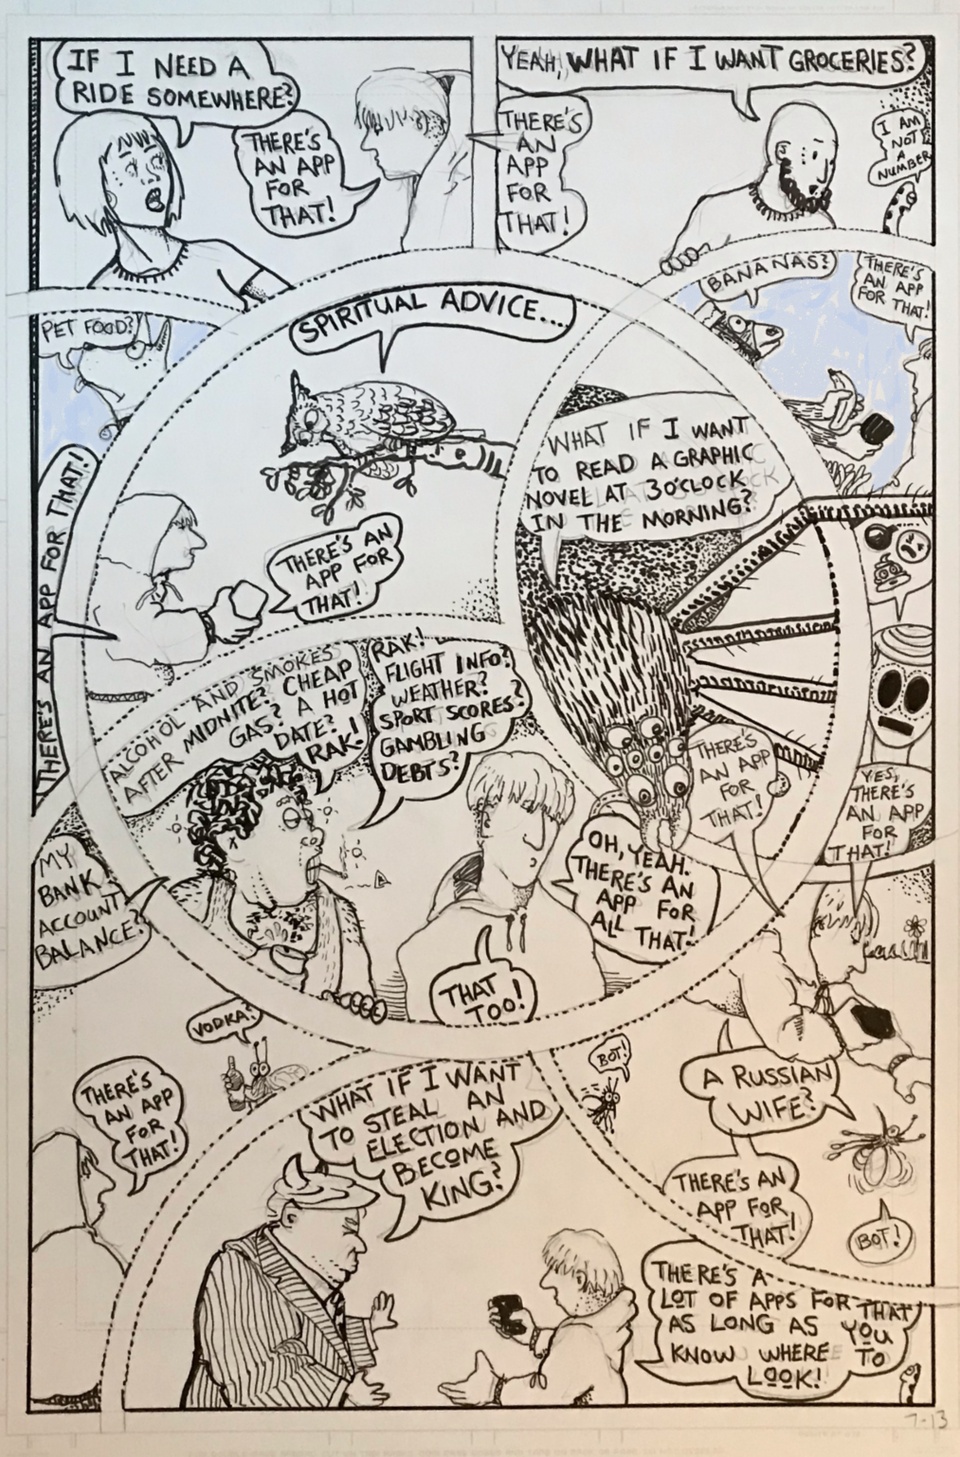 IF I NEED A
RIDE SOMEWHERE?
THERE'S
AN APP
FOR
THAT!
YEAH, WHAT IF I WANT GROCERIES?
THERE'S
AN
APP
FOR
THAT!
I AM
NOT
A
NUMBER
PET FOOD?
THERE'S AN APP FOR THAT!
SPIRITUAL ADVICE...
THERE'S AN
APP FOR
THAT!
BANANAS?
THERE'S
AN APP
FOR THAT!
WHAT IF I WANT
TO READ A GRAPHIC
NOVEL AT 3 O'CLOCK
IN THE MORNING?
THERE'S
AN APP
FOR
THAT!
YES,
THERE'S
AN APP
FOR
THAT!
ALCOHOL AND SMOKES
AFTER MIDNITE? CHEAP
GAS? A HOT
DATE?
RAK!
RAK!
FLIGHT INFO?
WEATHER?
SPORT SCORES?
GAMBLING
DEBTS?
OH, YEAH.
THERE'S AN
APP FOR
ALL THAT!
THAT
TOO!
MY
BANK
ACCOUNT
BALANCE?
THERE'S
AN APP
FOR
THAT!
VODKA?
BOT!
A RUSSIAN
WIFE?
THERE'S AN
APP FOR
THAT!
BOT!
WHAT IF I WANT
TO STEAL AN
ELECTION AND
BECOME
KING?
THERE'S A
LOT OF APPS FOR THAT
AS LONG AS YOU
KNOW WHERE TO
LOOK!
7-13